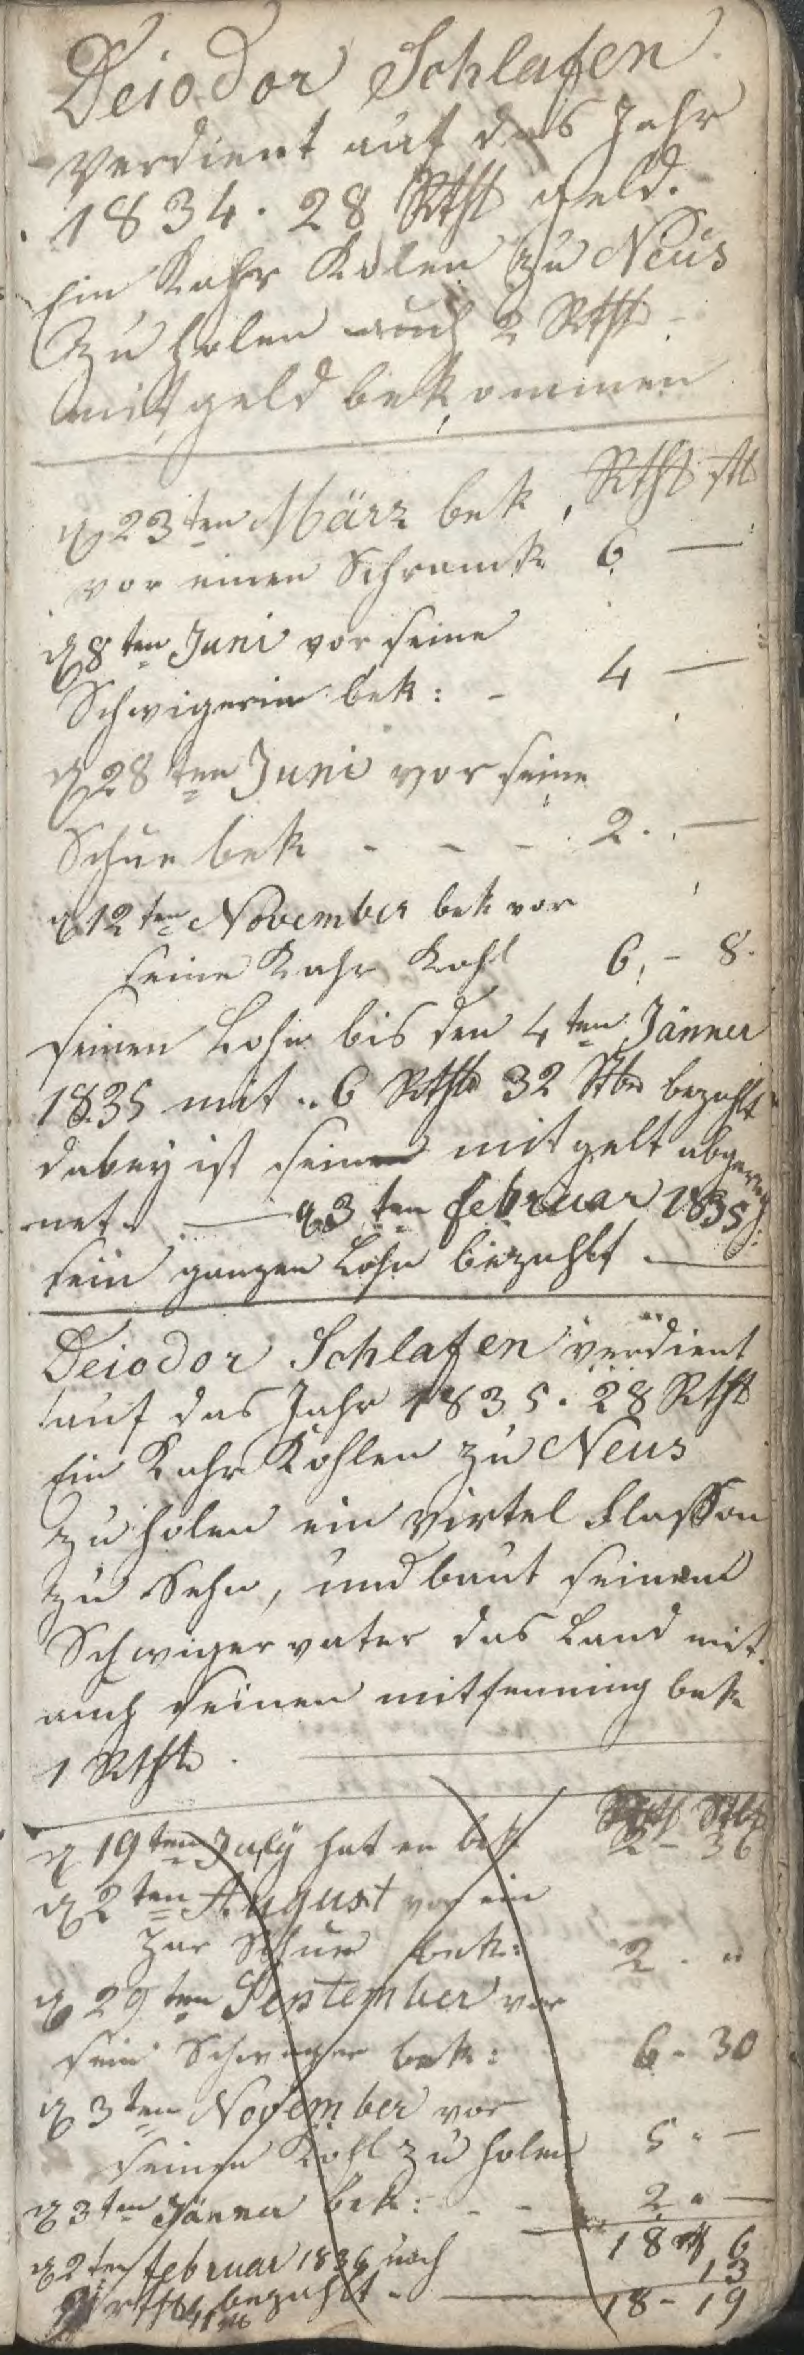 Deiodor Schlafen
verdient auf das Jahr
1834. 28 Rthlr geld.
Ein Kahr Kolen zu Neus
zu holen auch 2 Rthlr
mitgeld bekommen
Rthlr stb
d 23ten März bek,
vor einen Schranck 6 —
d 8ten Juni vor seine
Schwigerin bek: - 4 —
d 28ten Juni vor seine
Schue bek - - - 2. —
d 12ten November bek vor
seine Kahr Kohl 6, - 8.
seinen Lohn bis den 4ten Jänner
1835 mit .. 6 Rthlr 32 Stbr bezahlt
dabey ist seinen mitgelt abgerech
net. — d 3ten februar 1835
sein ganzen Lohn bezahlt. —
Deiodor Schlafen verdient
auf das Jahr 1835. 28 Rthlr
Ein Kahr Kohlen zu Neus
zu holen ein virtel
zu Sehn, und baut seinem
Schwigervater das Land mit.
auch seinen mitfenning bek
1 Rthlr.
Rthlr Stbr
d 19ten July hat er bek 2 - 36
d 2ten August vor ein
par Schue bek: 2 . "
d 29ten September vor
sein Schwager bek: 6 - 30
d 3ten November vor
seinen Kohl zu holen 5 " —
d 3ten Jänner bek: - - 2 " —
18 6
d 2ten februar 1836 noch 13
rthlr bezahlt. — 18 - 19